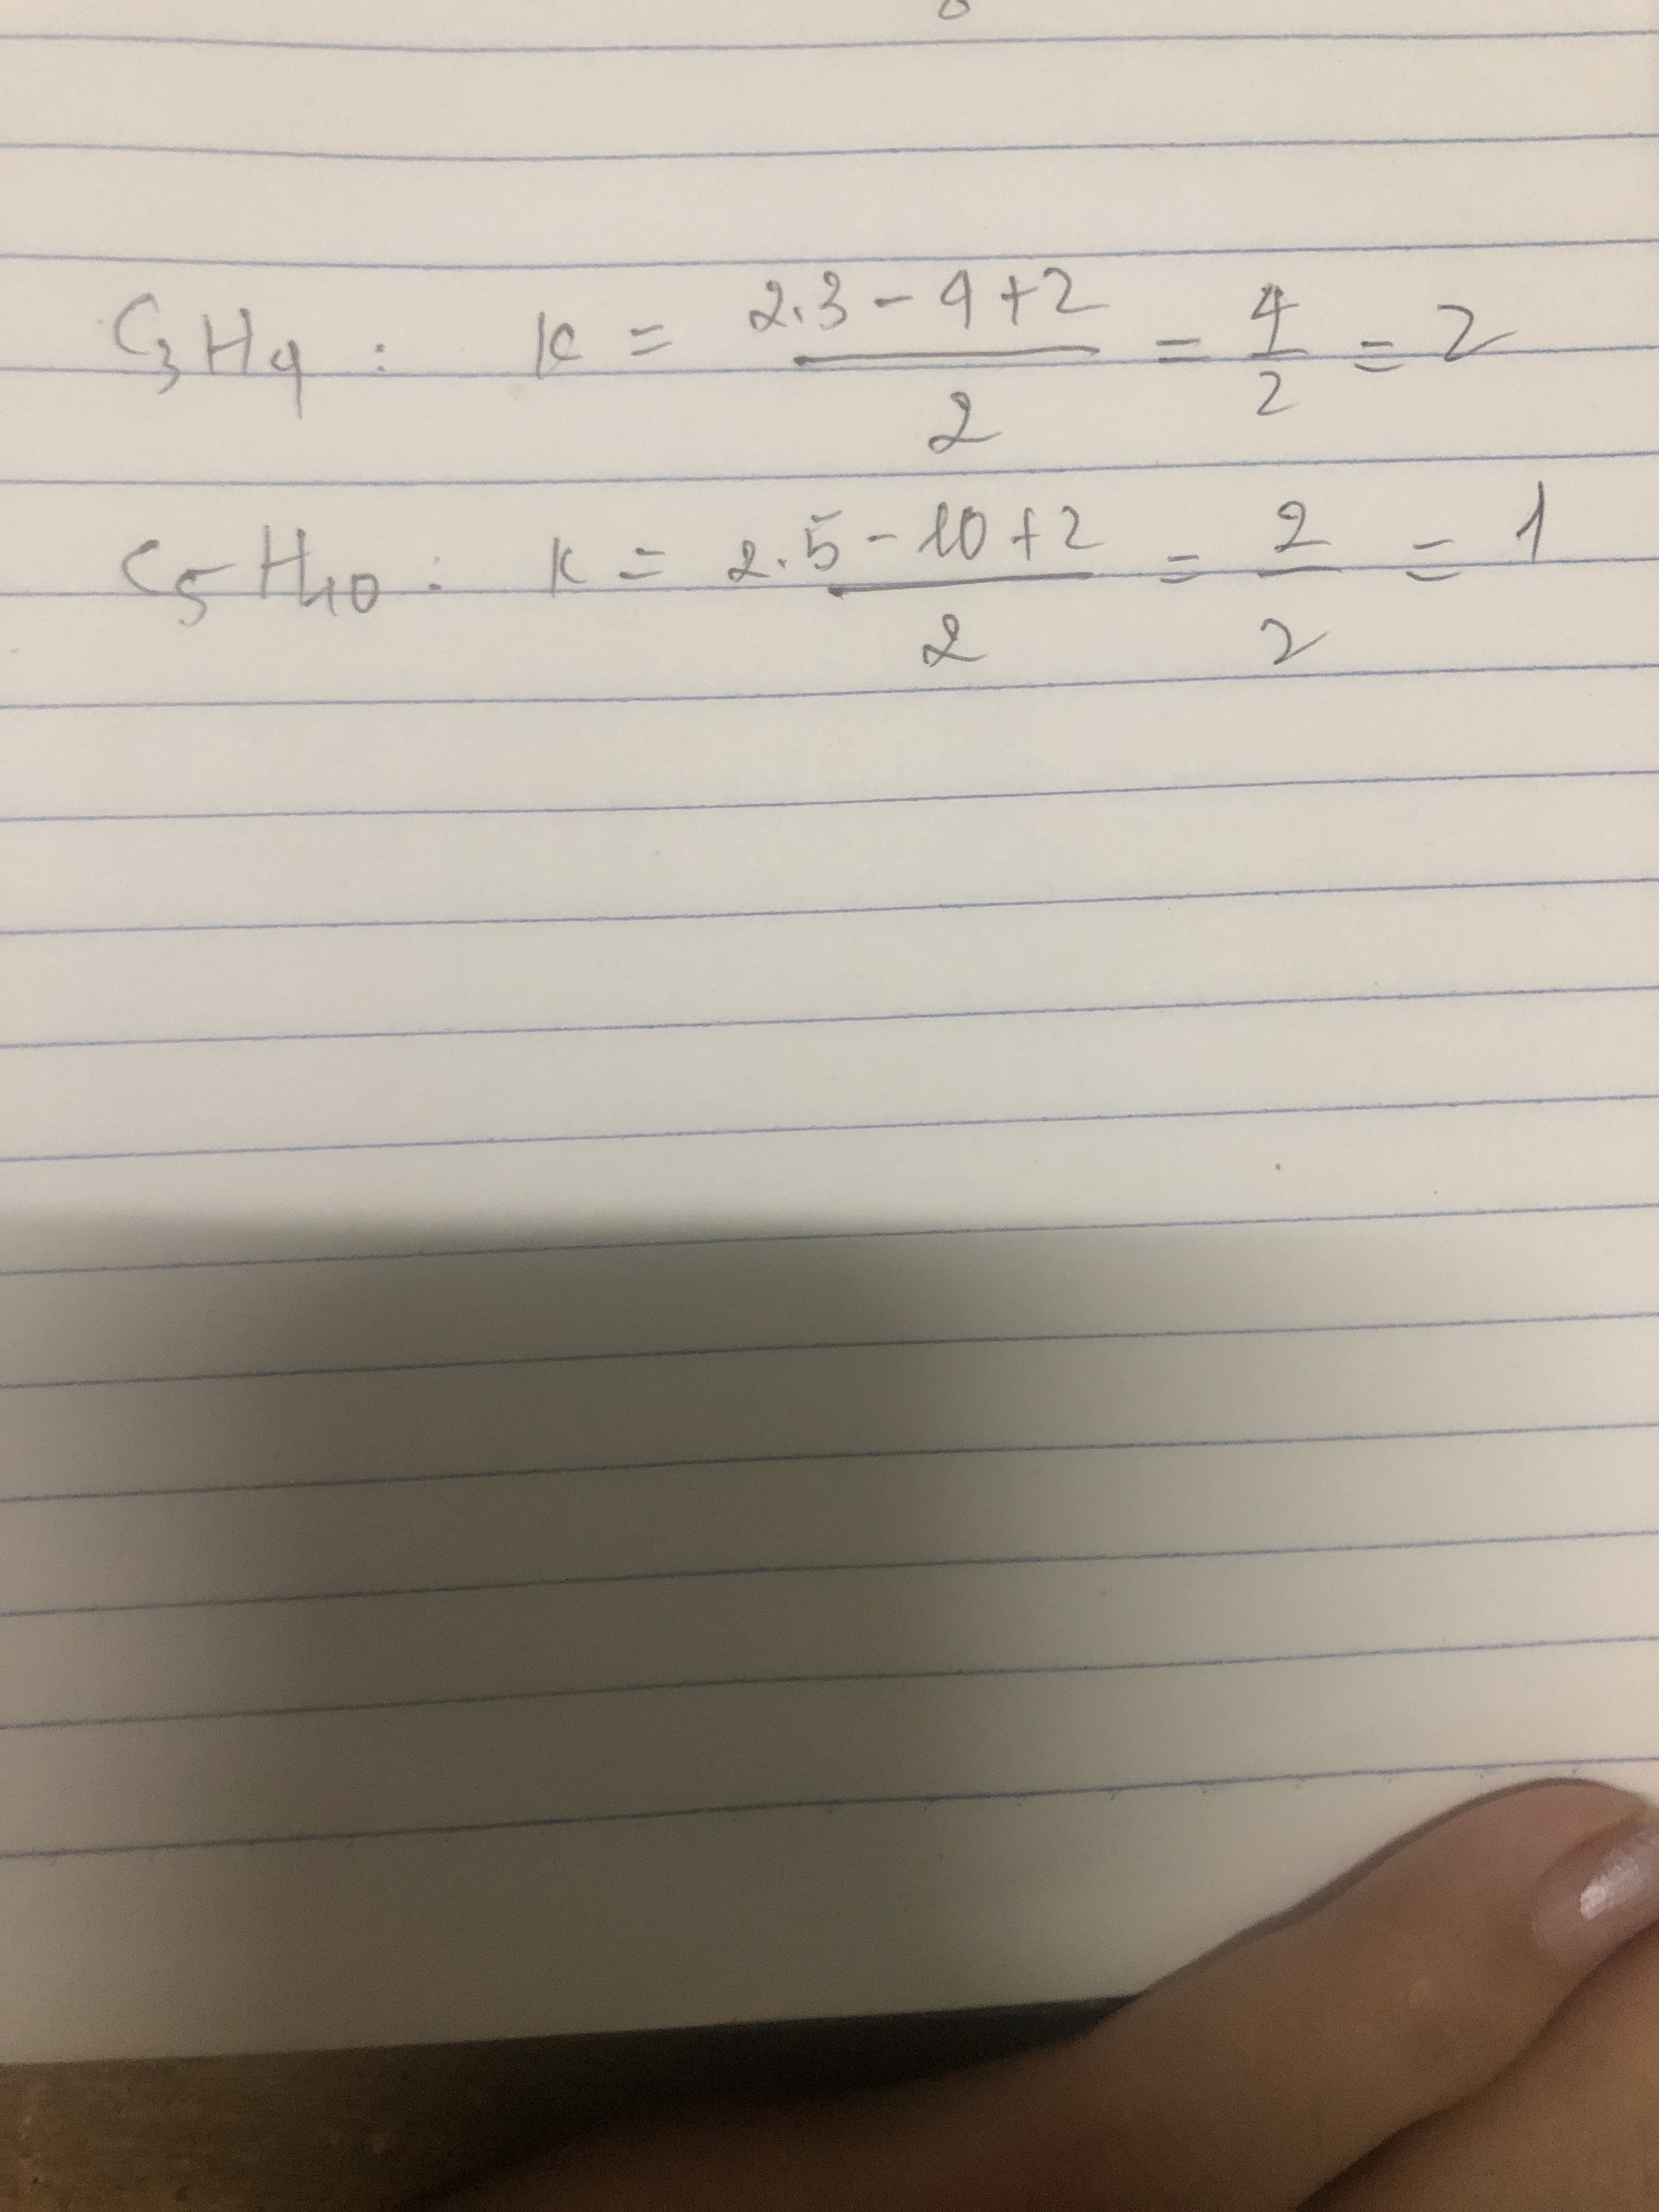 C₃H₄ : k = (2.3 - 4 + 2)/2 = 4/2 = 2
C₅H₁₀ : k = (2.5 - 10 + 2)/2 = 2/2 = 1